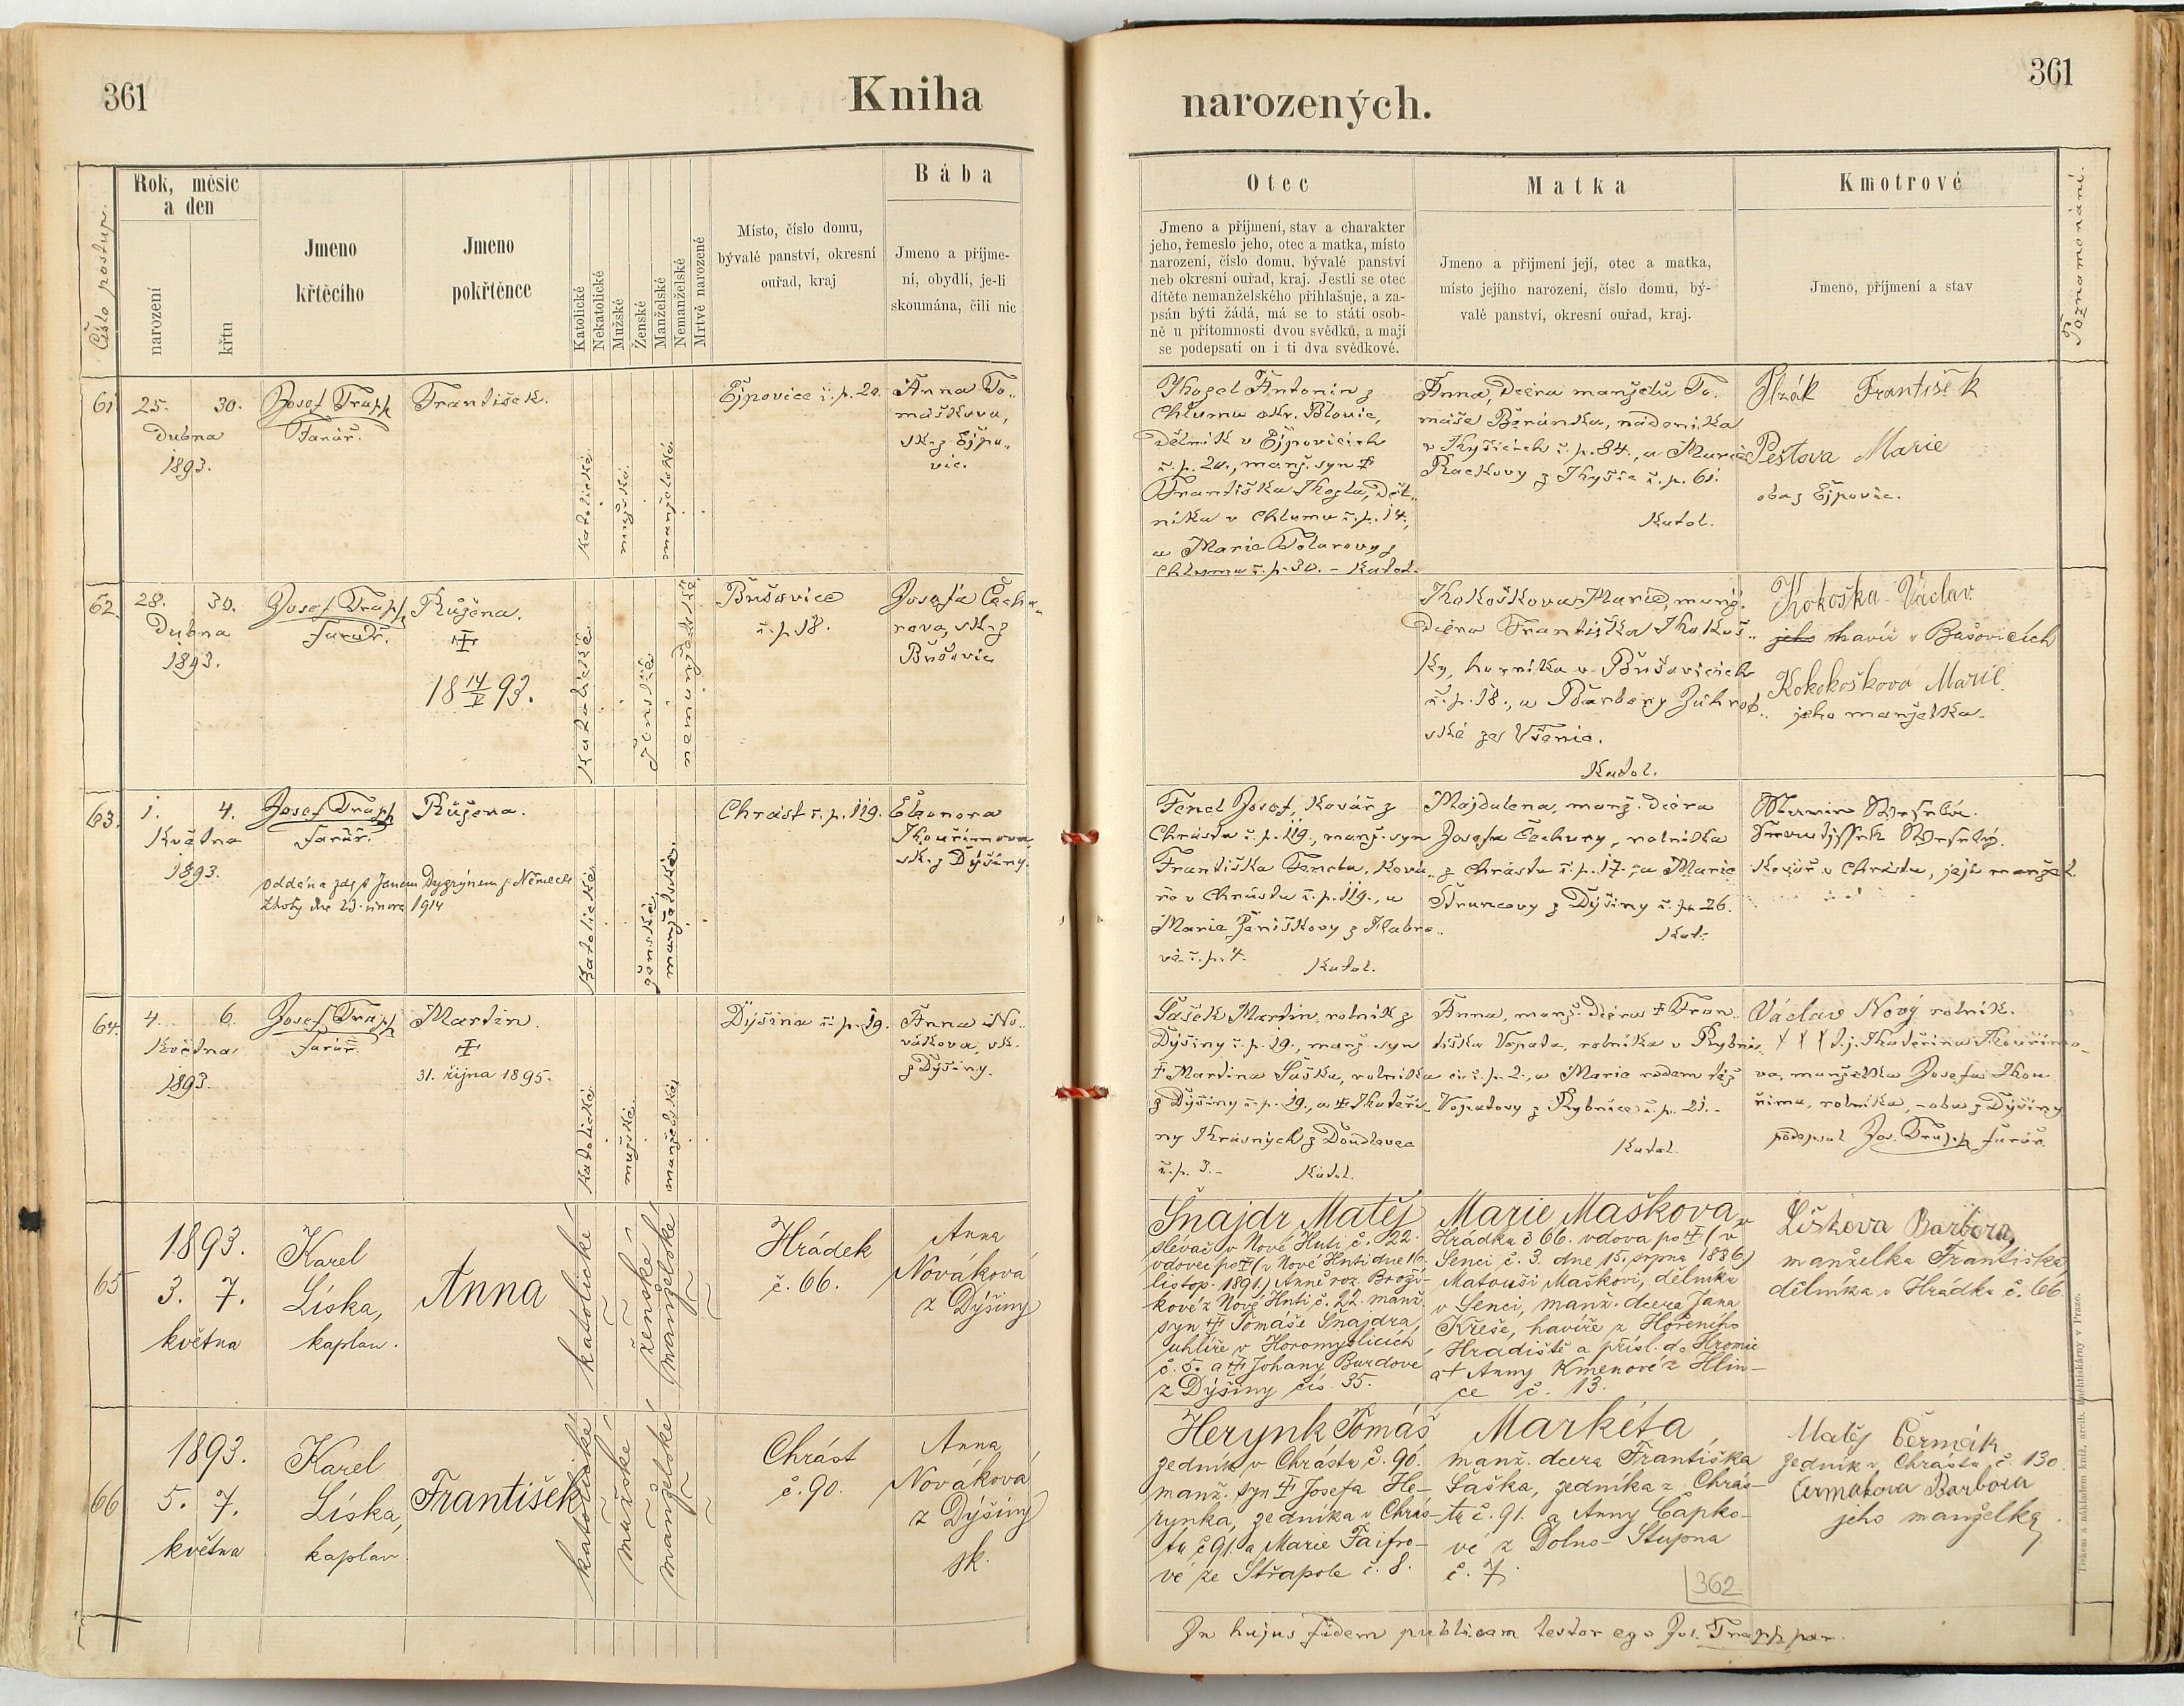 361
Kniha
narozených.
361
Číslo postup.
Rok, měsíc
a den
narození
křtu
Jmeno
křtěcího
Jmeno
pokřtěnce
Katolické
Nekatolické
Mužské
Ženské
Manželské
Nemanželské
Mrtvě narozené
Místo, číslo domu,
bývalé panství, okresní
ouřad, kraj
Bába
Jmeno a příjme-
ní, obydlí, je-li
skoumána, čili nic
Otec
Jmeno a příjmení, stav a charakter
jeho, řemeslo jeho, otec a matka, místo
narození, číslo domu, bývalé panství
neb okresní ouřad, kraj. Jestli se otec
dítěte nemanželského přihlašuje, a za-
psán býti žádá, má se to státi osob-
ně u přítomnosti dvou svědků, a mají
se podepsati on i ti dva svědkové.
Matka
Jmeno a přijmení její, otec a matka,
místo jejího narození, číslo domu, bý-
valé panství, okresní ouřad, kraj.
Kmotrové
Jmeno, příjmení a stav
Poznamenání.
61
25. 30.
Dubna
1893.
Josef Trapp
Farář.
František.
katolické
mužské.
manželské
Ejpovice č. p. 20.
Anna To..
máškova,
sk. z Ejpo..
vic.
Kozel Antonín z
Chlumu okr. Blovic,
dělník v Ejpovicích
č. p. 20., manž. syn
Františka Kozla, děl..
níka v Chlumu č. p. 14.,
a Marie Tolarovy z
Chlumu č. p. 30. - Katol.
Anna, dcera manželů To..
máše Beránka, nádeníka
v Kyšicích č. p. 84., a Marie
Rackovy z Kyšic č. p. 61.
Katol.
Plzák František
Peštova Marie
oba z Ejpovic.
62.
28. 30.
Dubna
1893.
Josef Trapp
farář.
Růžena.
18 14/V 93.
Katolické
ženské
nemanželské
Bušovice
č. p. 18.
Josefa Čechu..
rova, sk. z
Bušovic
Kokoškova Marie, manž.
dcera Františka Kokoš..
ky, horníka v Bušovicích
č. p. 18., a Barbory Záhrob..
ské ze Všenic.
Katol.
Kokoška Václav
jeho havíř v Bušovicích
Kokokošková Marie
jeho manželka.
63.
1. 4.
Května
1893.
Josef Trapp
farář.
Růžena.
oddána zde s Janem Dygrýnem z Německé
Lhoty dne 23. února 1914
Katolické
ženské
manželské.
Chrást č. p. 119.
Eleonora
Kouřimova
sk. z Dýšiny.
Fencl Josef, kovář z
Chrástu č. p. 119., manž. syn
Františka Fencla, ková..
ře v Chrástu č. p. 119., a
Marie Beniškovy z Habro..
vé č. p. 4.
Katol.
Majdalena, manž. dcera
Josefa Čechury, rolníka
z Chrástu č. p. 17., a Marie
Štruncovy z Dýšiny č. p. 26.
Kat.
Kovář v Chrástu, její manžel
64.
4. 6.
Května
1893.
Josef Trapp
farář.
Martin.
31. října 1895.
Katolické
mužské
manželské
Dýšina č. p. 19.
Anna No..
vákova, sk.
z Dýšiny.
Šašek Martin, rolník z
Dýšiny č. p. 19., manž. syn
Martina Šaška, rolníka
z Dýšiny č. p. 19., a Kateři..
ny Krásných z Doudlevec
č. p. 3.-
Katol.
Anna, manž. dcera Fran..
tiška Vopata, rolníka v Rybni..
ci č. p. 2., a Marie rodem též
Vopatovy z Rybnice č. p. 21.-
Katol.
Václav Nový rolník.
X X X t. j. Kateřina Kouřimo-
va, manželka Josefa Kou
řima, rolníka, - oba z Dýšiny
podepsal Jos. Trapp farář.
65
1893.
3. 7.
května
Karel
Líska,
kaplan.
Anna
katolické
ženské
manželské
Hrádek
č. 66.
Anna
Nováková
z Dýšiny
Šnajdr Matěj
slévač v Nové Huti č. 22.
vdovec po (v Nové Huti dne 16.
listop. 1891.) Anně roz. Brož-
kové z Nové Huti č. 22. manž.
syn Tomáše Šnajdra,
uhlíře v Horomyslicích
č. 5. a Johany Burdové
z Dýšiny čís. 35.
Marie Maškova z
Hrádku č 66. vdova po (v
Senci č. 3. dne 15. srpna 1886)
Matouši Maškovi, dělníku
v Senci, manž. dcera Jana
Křeše, havíře z Hořeního
Hradiště a přísl. do Hromic
a + Anny Kmenové z Hlin-
ce č. 13.
Líškova Barbora,
manželka Františka
dělníka v Hrádku č. 66.
66
1893.
5. 7.
května
Karel
Líska,
kaplan
František
katolické
mužské
manželské
Chrást
č. 90.
Anna
Nováková
z Dýšiny
sk.
Herynk Tomáš
zedník v Chrástu č. 90.
manž. syn Josefa He-
rynka, zedníka v Chrás-
tu č 91. a Marie Faifro-
vé ze Střapole č. 8.
Markéta
manž. dcera Františka
Šaška, zedníka z Chrás-
tu č. 91. a Anny Čapko-
vé z Dolno-Stupna
č. 7.
Matěj Čermák
zedník v Chrástu č. 130
Čermákova Barbora
jeho manželka.
362
In hujus fidem publicam testor ego Jos. Trapp, par.
Tiskem a nákladem kniž. arcib. knihtiskárny v Praze.